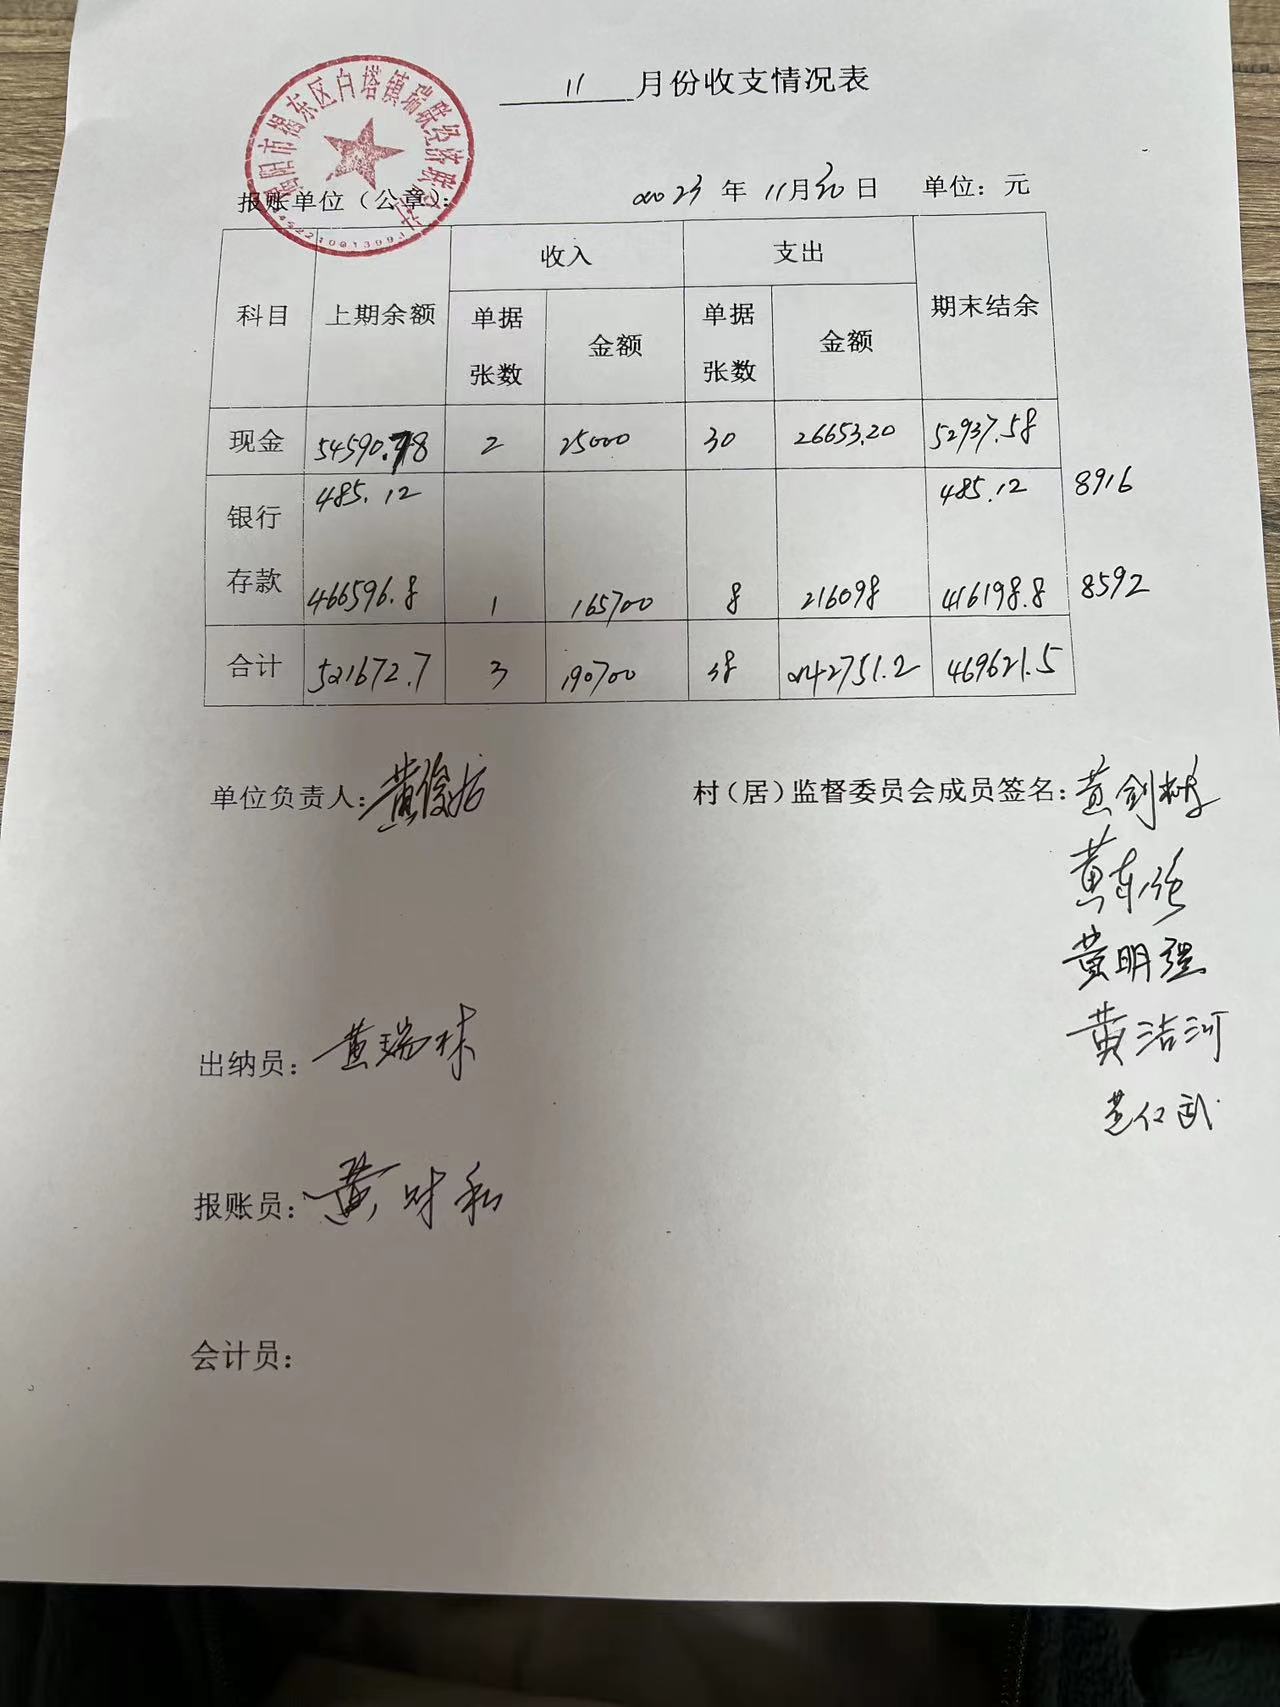 11 月份收支情况表
揭阳市揭东区白塔镇瑞联经济联合社
报账单位（公章）： 2023 年 11月30日 单位：元
科目 上期余额 收入 支出 期末结余
单据张数 金额 单据张数 金额
现金 54590.78 2 25000 30 26653.20 52937.58
银行存款 485.12 485.12 8916
466596.8 1 165700 8 216098 416198.8 8592
合计 521672.7 3 190700 38 242751.2 469621.5
单位负责人： 村（居）监督委员会成员签名：
黄明强
黄洁河
出纳员：黄瑞林
报账员：黄财和
会计员：